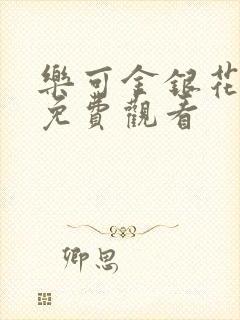 樂可金銀花
免費觀看
卿思